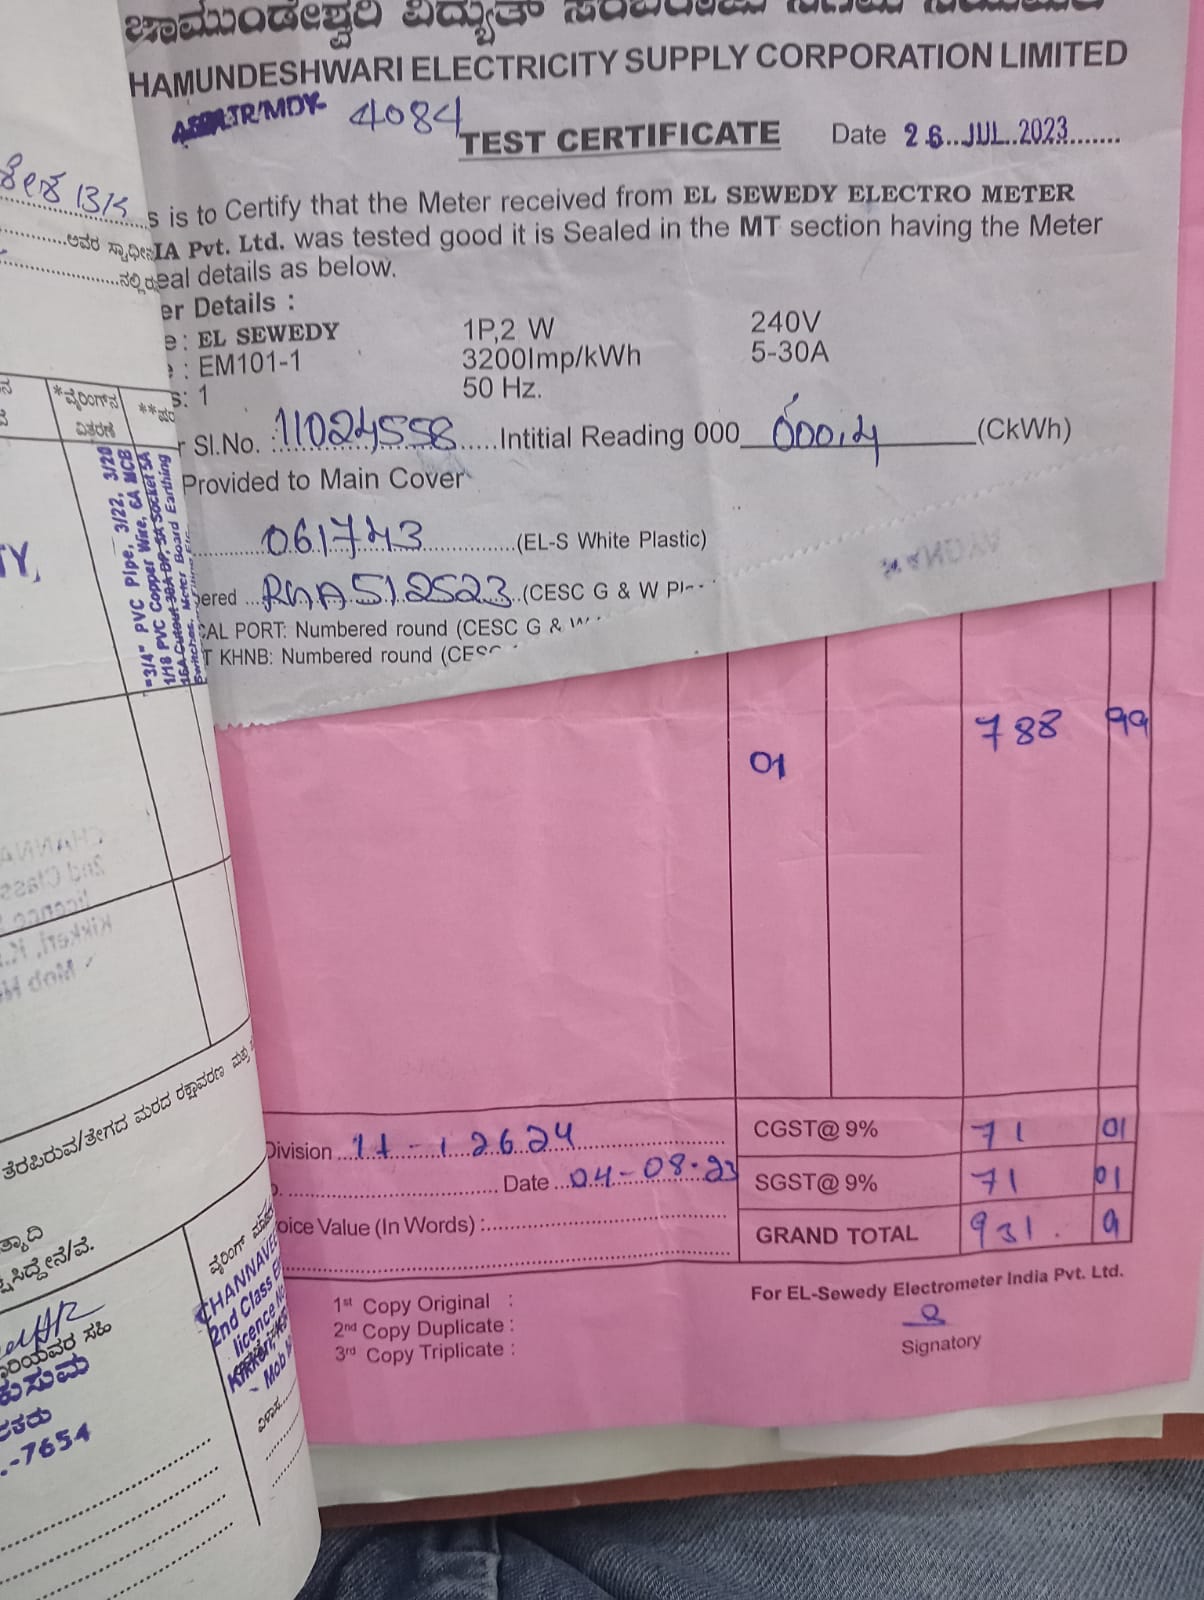 ಚಾಮುಂಡೇಶ್ವರಿ ವಿದ್ಯುತ್
HAMUNDESHWARI ELECTRICITY SUPPLY CORPORATION LIMITED
4084
TEST CERTIFICATE Date 26 JUL 2023
s is to Certify that the Meter received from EL SEWEDY ELECTRO METER
IA Pvt. Ltd. was tested good it is Sealed in the MT section having the Meter
eal details as below.
er Details :
e : EL SEWEDY 1P,2 W 240V
: EM101-1 3200Imp/kWh 5-30A
s: 1 50 Hz.
r Sl.No. : 11024558 Intitial Reading 000 000.4 (CkWh)
Provided to Main Cover
061743 (EL-S White Plastic)
ered 512523 (CESC G & W Pl
CAL PORT: Numbered round (CESC G & W
T KHNB: Numbered round (CESC
*ವೈರಿಂಗ್‌ನ
ವಿತರಣೆ
3/4" PVC Pipe, 3/22, 3/20
1/18 PVC Copper Wire, 6A MCB
Meter Board Earthing
01 788 99
Division 11-12624 CGST@ 9% 71 01
Date 04-08-23 SGST@ 9% 71 01
oice Value (In Words) : GRAND TOTAL 931. 9
For EL-Sewedy Electrometer India Pvt. Ltd.
1st Copy Original :
2nd Copy Duplicate :
3rd Copy Triplicate :
Signatory
ತೆರಪಿರುವ/ತೇಗದ ಮರದ ರಕ್ಷಾವರಣ
ವೈರಿಂಗ್
CHANNAVEE
2nd Class E
licence No
Kikkeri, K
Mob
ವಿಳಾಸ
ಸಹಿ
ಕುಸುಮ
-7654